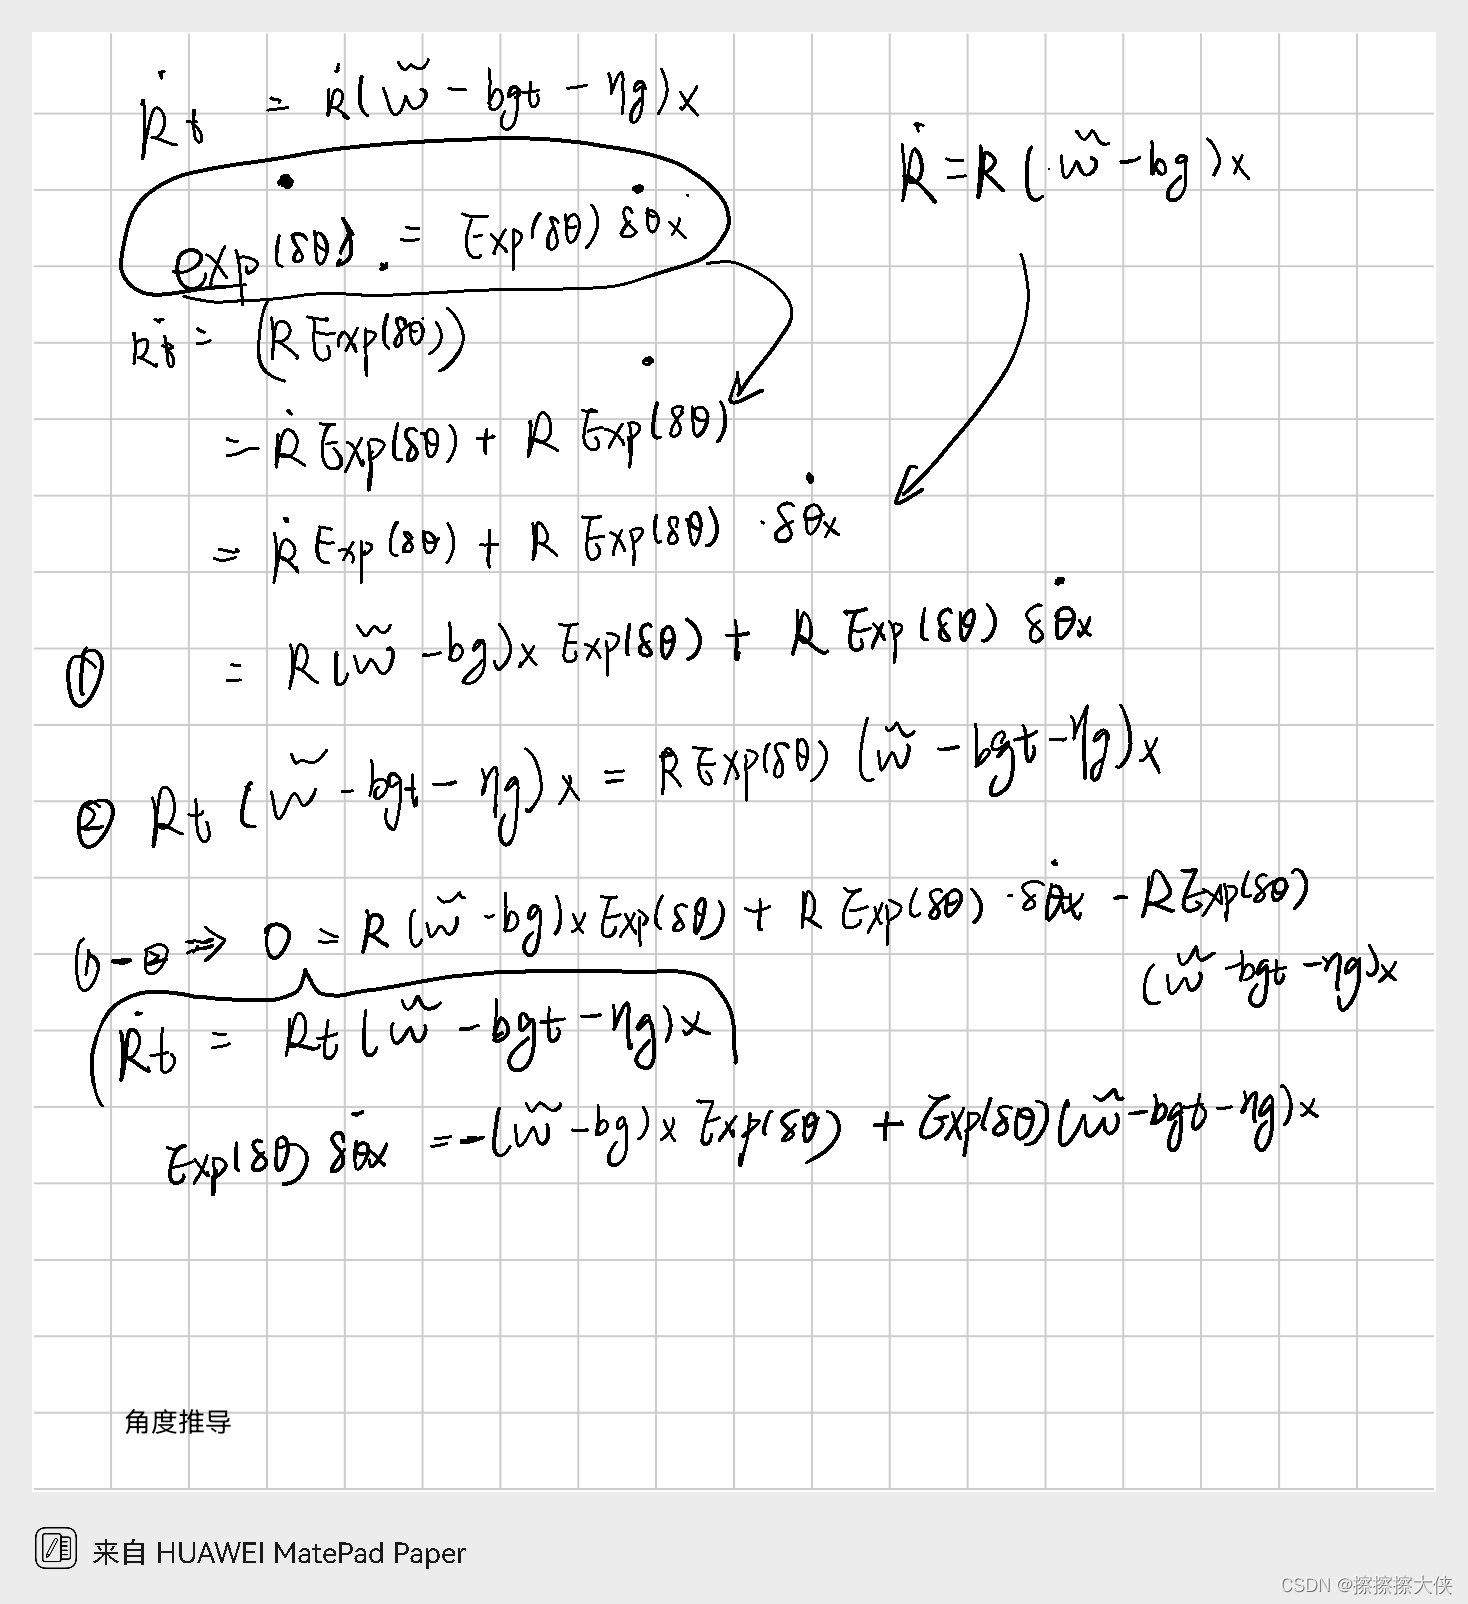 Ṙt = Ṙ(w̃ - bgt - ηg)x
Ṙ = R(w̃ - bg)x
exp(δθ)˙ = Exp(δθ) δθ̇x
Ṙt = (R Exp(δθ))
= Ṙ Exp(δθ) + R Exp(δθ)˙
= Ṙ Exp(δθ) + R Exp(δθ) · δθ̇x
① = R(w̃ - bg)x Exp(δθ) + R Exp(δθ) δθ̇x
② Rt (w̃ - bgt - ηg)x = R Exp(δθ) (w̃ - bgt - ηg)x
① - ② ⇒ 0 = R(w̃ - bg)x Exp(δθ) + R Exp(δθ) · δθ̇x - R Exp(δθ)
(w̃ - bgt - ηg)x
Ṙt = Rt (w̃ - bgt - ηg)x
Exp(δθ) δθ̇x = -(w̃ - bg)x Exp(δθ) + Exp(δθ)(w̃ - bgt - ηg)x
角度推导
来自 HUAWEI MatePad Paper
CSDN @擦擦擦大侠